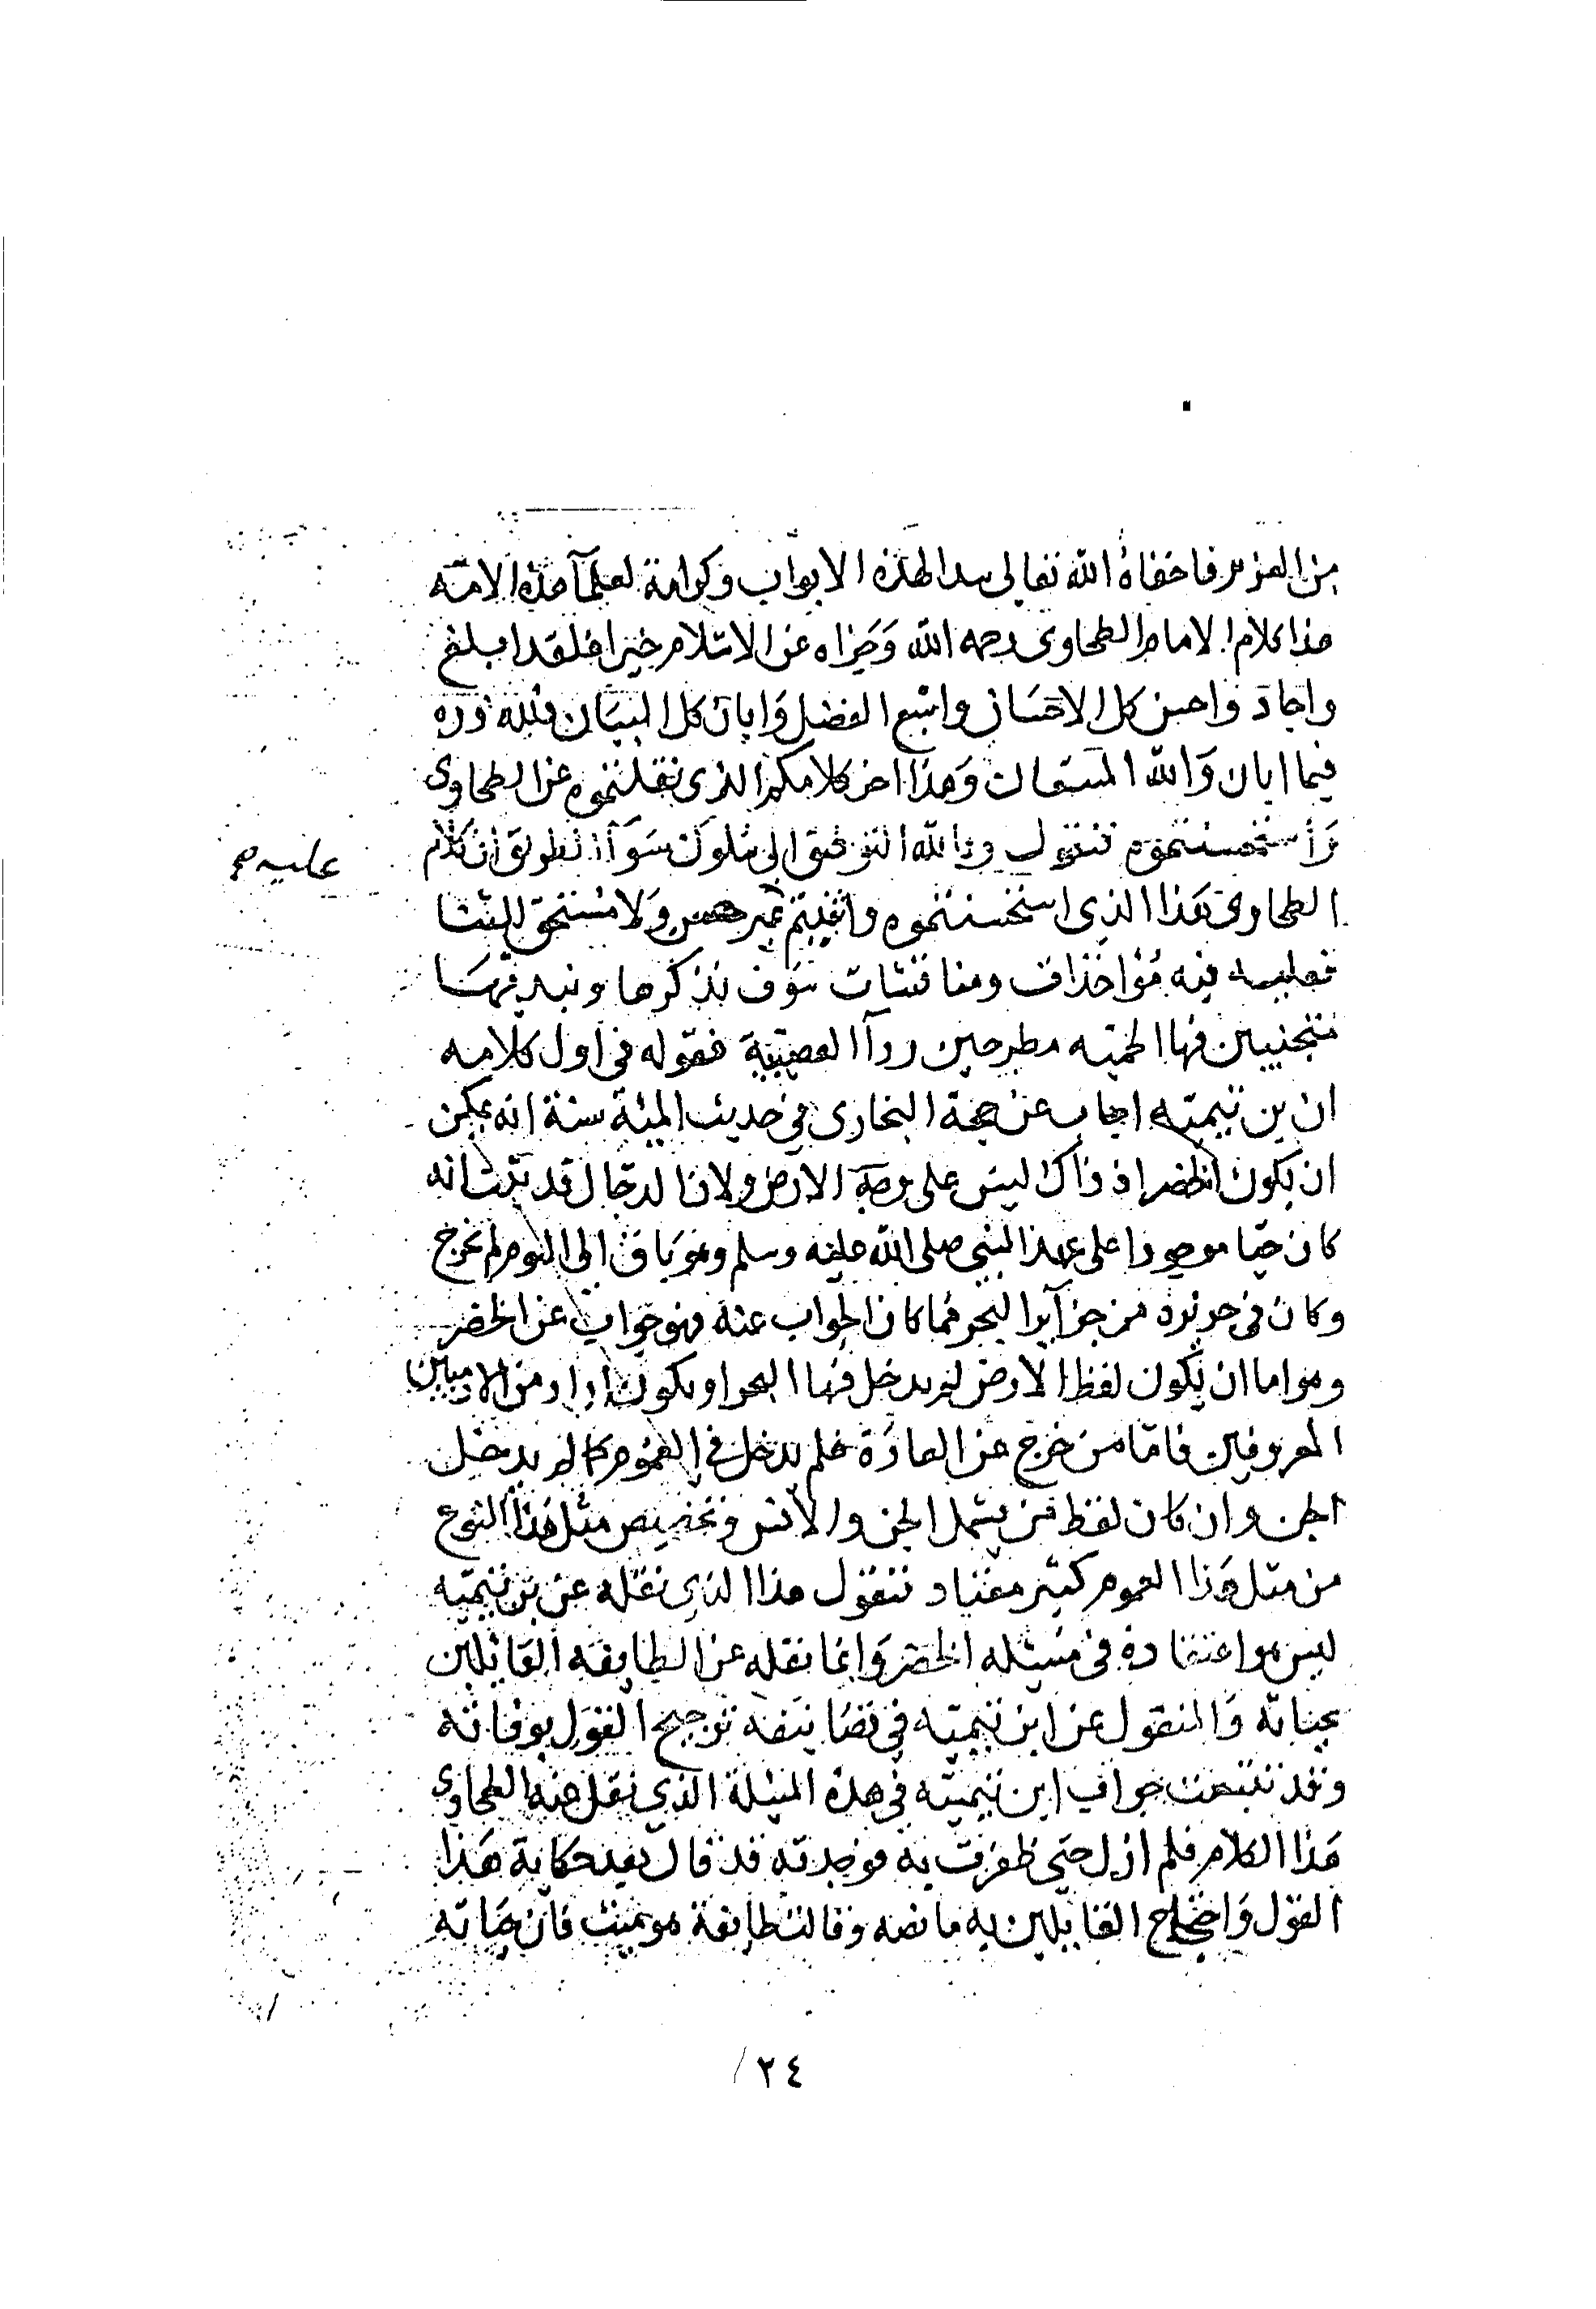 من العزيز فاخفاه الله تعالى سدا لهذه الابواب وكرامة لعلمآ هذه الامته
هذا كلام الامام الطحاوى رحمه الله وجزاه عن الاسلام خيرا فلقد ابلغ
واجاد واحسن كل الاحسان واشبع الفضل وابان كل البيان فلله دره
فيما ابان والله المستعان وهذا اخر كلامكم الذى نقلتموه عن الطحاوى
واستحسنتموه فنقول وبالله التوفيق الى سلوك سوآء الطريق ان كلام
عليه صح
الطحاوى هذا الذى استحسنتموه واثنيتم غير حسن ولا مستحق للثنا
فعليه فيه مؤاخذات ومناقشات سوف نذكرها ونبديها
متجنبين فيها الحميه مطرحين ردآ العصبية فقوله فى اول كلامه
ان بن تيميته اجاب عن حجة البخارى في حديث المئة سنة انه يمكن
ان يكون الخضر اذ ذاك ليس على وجه الارض ولان الدجال قد ثبت انه
كان حيا موجودا على عهد النبي صلى الله عليه وسلم وهو باق الى اليوم لم يخرج
وكان فى جزيرة من جزآير البحر فما كان الجواب عنه فهو جواب عن الخضر
وهو اما ان يكون لفظ الارض لم يدخل فيها البحر او يكون اراد من الادميين
المعروفين فامّا من خرج عن العادة فلم يدخل في العموم كما لم يدخل
الجن وان كان لفظ من يشمل الجن والانس وتخصيص مثل هذا النوع
من مثل هذا العموم كثير معتاد فنقول هذا الذي نقله عن بن تيميّه
ليس هو اعتقاده فى مسئله الخضر وانما نقله عن الطايفه القائلين
بحياته والمنقول عن ابن تيميّه في تصانيفه ترجيح القول بوفاته
وقد تتبعت جواب ابن تيميّه في هذه المسئلة الذي نقل عنه الطحاوي
هذا الكلام فلم ازل حتى ظفرت به فوجدته قد قال بعد حكاية هذا
القول واحتجاج القايلين به ما نصه وقالت طائفة هو ميت فان حياته
٢٤/